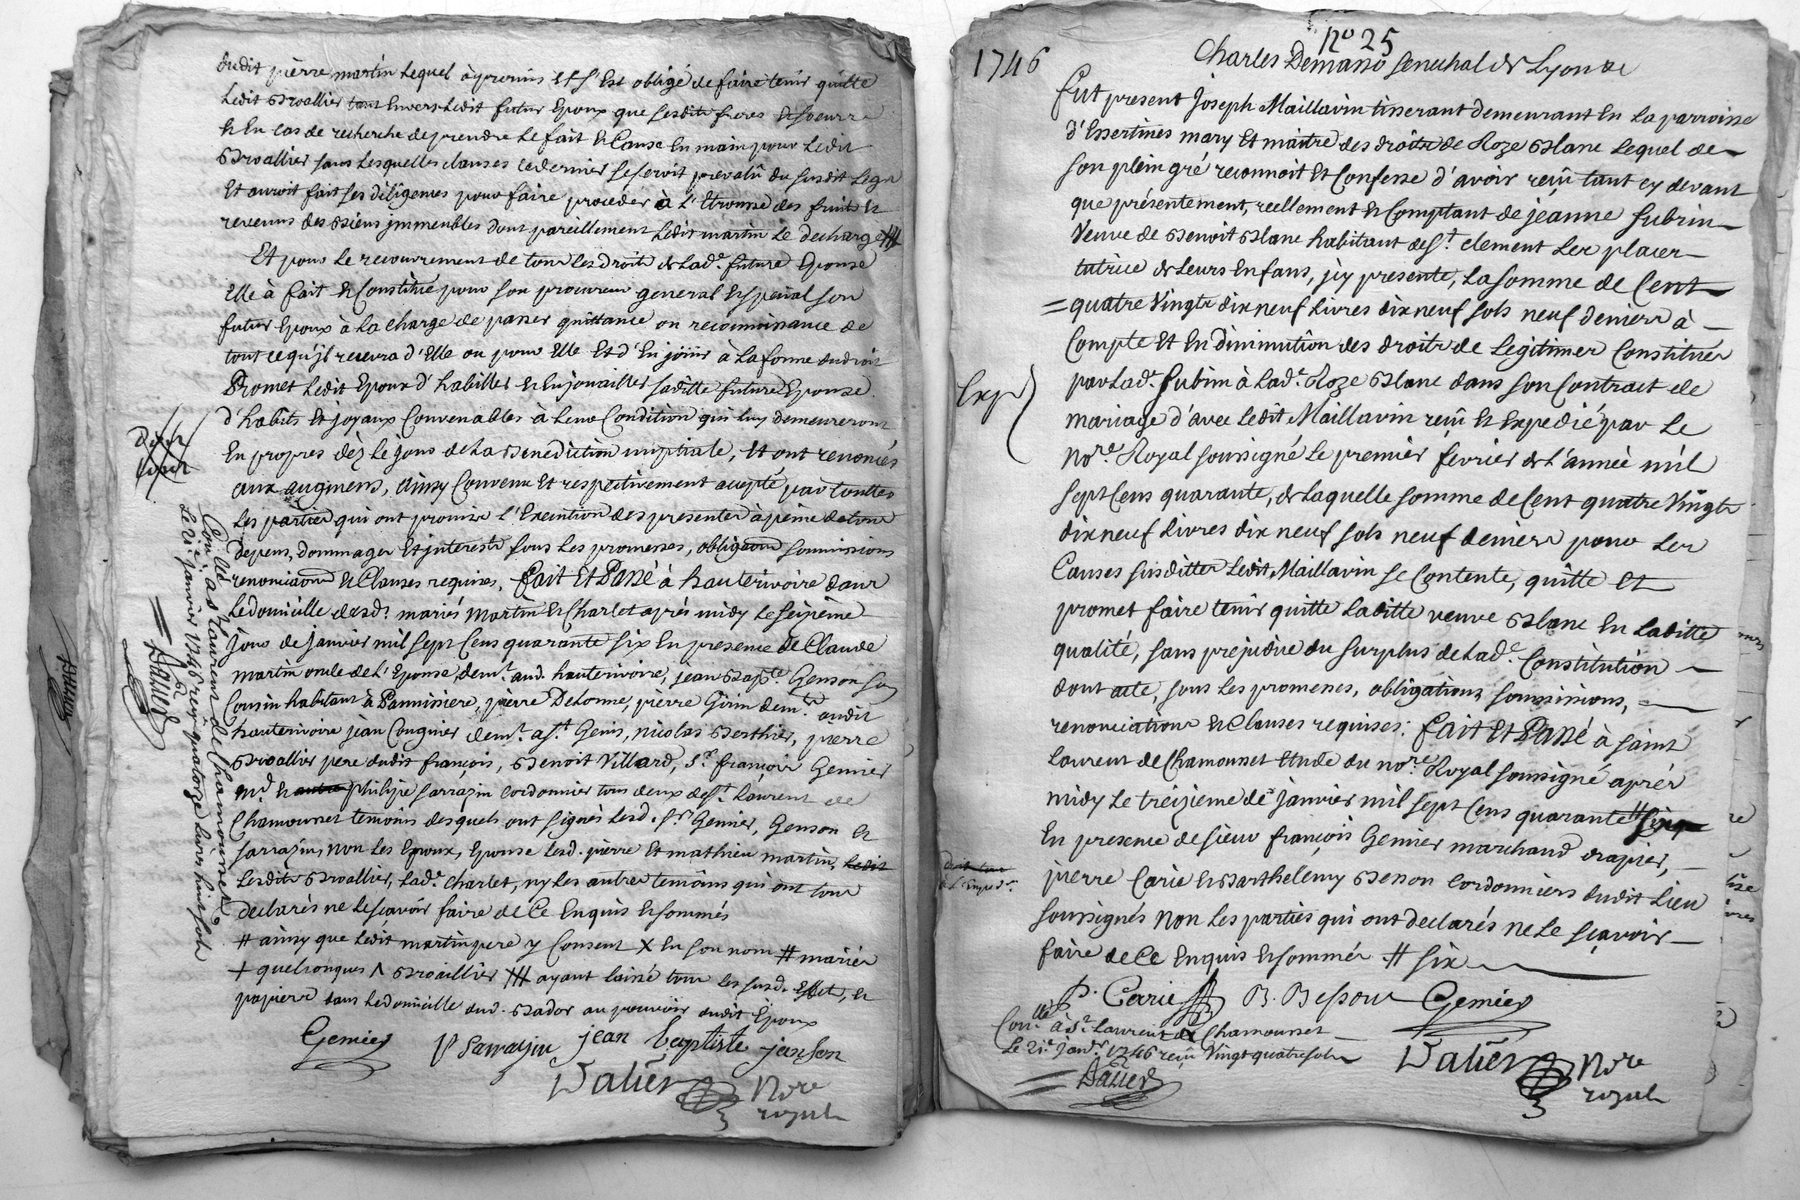 dudit pierre martin lequel à promis et s'Est obligé de faire tenir quitte
Ledit Broallier tant Envers Ledit futur Epoux que sesdits freres et soeurs
& En cas de recherche de prendre le fait & Cause En main pour Ledit
Broallier sans Lesquelles clauses ce dernier se seroit prevalû du susdit
Et auroit fait ses diligences pour faire proceder à l'Etrousse des fruits &
revenus des siens immeubles dont pareillement Ledit martin le decharge #
Et pour le recouvrement de tous les droits de Lade. future Epouse
Elle à fait & Constitué pour son procureur general & special son
futur Epoux à La charge de passer quittance ou reconnoissance de
tout ce qu'jl recevra d'Elle ou pour Elle Et d'En joüir à la forme du droit
Promet Ledit Epoux d'habiller & Enjouailler saditte future Epouse
d'habits Et joyaux Convenables à Leur Condition qui luy demeureront
En propres dez le jour de La Benediction nuptiale, Et ont renoncés
aux augmens, ainsy Convenu Et respectivement accepté par touttes
Les parties qui ont promis l'Execution des presentes à peine de tous
depens, dommages Et jnterests sous Les promesses, obligaons soumissions
renonciaons & Clauses requises, fait Et Passé à hauterivoire dans
Le domicille desd. mariés Martin & Charlet après midy le seizieme
jour de janvier mil sept Cens quarante six En presence de Claude
martin oncle de l'Epouse, demt. aud. hauterivoire, jean Bapte. Genson son
Cousin habitant à Pannissiere, pierre Delorme, pierre Girin demts. audit
hauterivoire jean Cougnier demt. a St. Genis, nicolas Berthier, pierre
Broallier pere dudit françois, Benoit Villard, Sr. françois Gemier
md. & philipe sarrazin cordonnier tous deux de St. Laurent de
Chamousset temoins desquels ont signés Lesd. Srs. Gemier, Genson et
sarrazin, non les Epoux, Epouse lesd. pierre Et mathieu martin, Ledit
Lesdits Broallier, Lade. Charlet, ny les autres temoins qui ont tous
declarés ne le sçavoir faire de Ce Enquis & sommés
# ainsy que Ledit martin pere y Consent X En son nom # mariés
+ quelconques Λ Broaillier # ayant laissé tous les susd. Effets, &
papiers dans le domicille dud. Bador au pouvoir dudit Epoux
Gemier P Sarrazin jean baptiste janson
Dalier Nore
royal
Conllé. a St Laurent de Chamousset
Le 21e. janvier 1746 reçu quatorze livres huit sols
Dalier
1746
No 25
Charles Demasso senechal de Lyon &c
Fut present Joseph Maillavin tisserant demeurant En La parroisse
d'Essertines mary Et maitre des droits de Roze Blanc Lequel de
son plein gré reconnoit Et Confesse d'avoir reçû tant cy devant
que présentement, reellement & Comptant de jeanne Subrin
Veuve de Benoit Blanc habitant de St. Clement les places
tutrice de Leurs Enfans, jcy presente, La somme de Cent
quatre Vingts dix neuf Livres dix neuf sols neuf deniers à
Compte Et En diminution des droits de Legitimes Constitués
par Lade. Subrin à Lade. Roze Blanc dans son Contract de
mariage d'avec Ledit Maillavin reçû & expedié par Le
nore. Royal soussigné Le premier février de l'année mil
sept Cens quarante, de Laquelle somme de Cent quatre Vingts
dix neuf Livres dix neuf sols neuf deniers pour Les
Causes susdittes Ledit Maillavin se Contente, quitte Et
promet faire tenir quitte Laditte veuve Blanc En Laditte
qualité, sans prejudice du surplus de Lade. Constitution
dont acte, sous Les promesses, obligations, soumissions,
renonciations & Clauses requises: fait Et Passé à saint
Laurent de Chamousset Etude du nore. Royal soussigné après
midy Le treizieme de janvier mil sept Cens quarante # cinq
En presence de sieur françois Gemier marchand drapier,
pierre Carie & Barthélemy Besson Cordonniers dudit Lieu
soussignés non Les parties qui ont declarés ne Le sçavoir
faire de Ce Enquis & sommés # six
Exp
P. Carie B. Besson Gemier
Conllé. à St. Laurent de Chamousset
Le 21e. janvr. 1746 reçu Vingt quatre sols
Dalier
Dalier Nore
royal